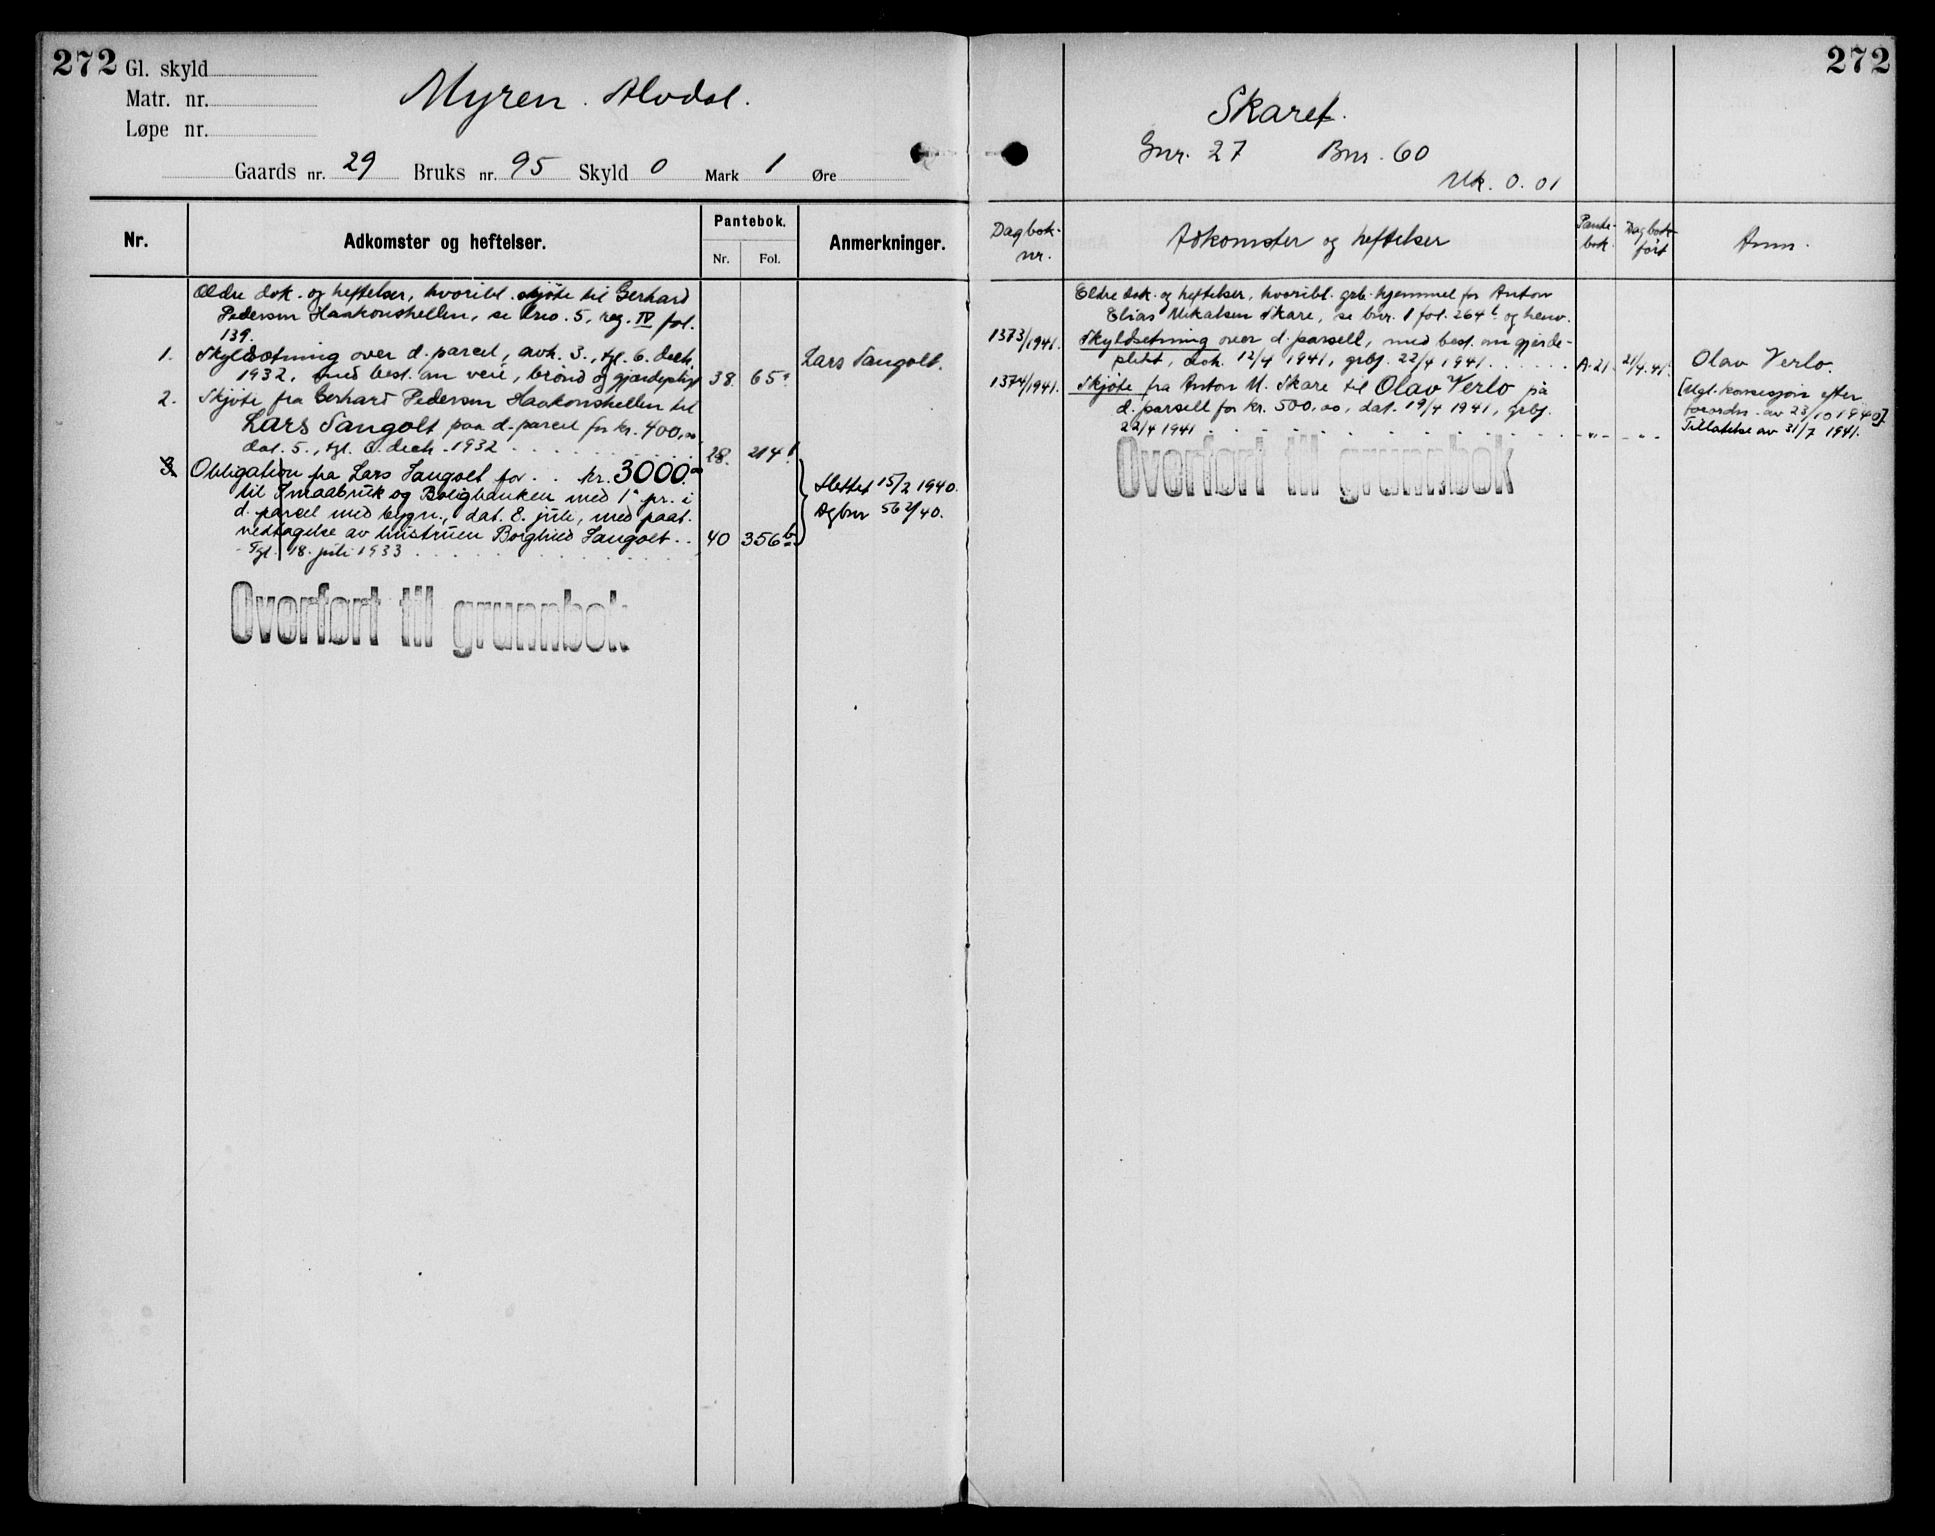 272
Gl. skyld
Matr. nr.
Løpe nr.
Myren. Alvdal.
Gaards nr. 29 Bruks nr. 95 Skyld 0 Mark 1 Øre
Nr.
Adkomster og heftelser.
Pantebok.
Nr. Fol.
Anmerkninger.
Ældre dok. og heftelser, hvoribl. skjøte til Gerhard
Pedersen Haakonshellen, se bno. 5, reg. IV fol.
139.
1. Skyldsætning over d. parcel, avh. 3., tgl. 6. decb.
1932, med best. om vei, brønd og gjærdepligt 38. 65a Lars Sangolt.
2. Skjøte fra Gerhard Pedersen Haakonshellen til
Lars Sangolt paa d. parcel for kr. 400,00
dat. 5., tgl. 6. decb. 1932 . . . 28. 214b
3. Obligation fra Lars Sangolt for . . kr. 3000.00
til Smaabruk og Boligbanken med 1ste pr. i
d. parcel med bygn., dat. 8. juli, med paat.
vedtagelse av hustruen Borghild Sangolt . . 40 356b
Tgl. 18. juli 1933 . . .
Slettet 15/2 1940.
Dgbnr 562/40.
Overført til grunnbok
272
Skaret.
Gnr. 27 Bnr. 60
Mk. 0.01
Dagbok-
nr.
Adkomster og heftelser
Pante-
bok.
Dagbok-
ført
Anm.
Eldre dok. og heftelser, hvoribl. grb. hjemmel for Anton
Elias Mikalsen Skare, se bnr. 1 fol. 264b og henv.
1373/1941. Skyldsetning over d. parsell, med best. om gjerde-
plikt, dok. 12/4 1941, grbj. 22/4 1941. . . . A.21. 21/4.41. Olav Verlo.
1374/1941. Skjøte fra Anton M. Skare til Olav Verlo på
d. parsell for kr. 500,00, dat. 19/4 1941, grbj.
22/4 1941 . . . -"- -"-
[Mgl. konsesjon efter
forordn. av 23/10 1940].
Tillatelse av 31/7 1941.
Overført til grunnbok